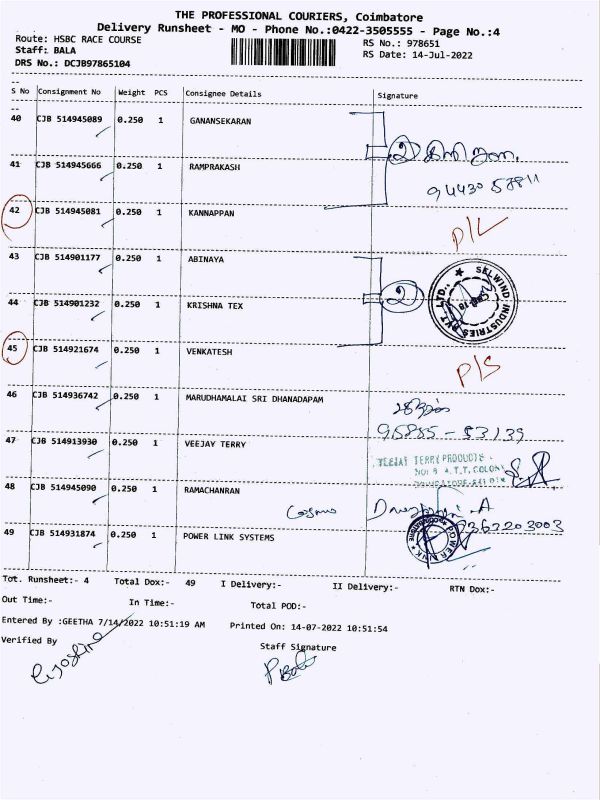 THE PROFESSIONAL COURIERS, Coimbatore
Delivery Runsheet - MO - Phone No.:0422-3505555 - Page No.:4
Route: HSBC RACE COURSE
RS No.: 978651
Staff: BALA
RS Date: 14-Jul-2022
DRS No.: DCJB97865104
S No Consignment No Weight PCS Consignee Details Signature
40 CJB 514945089 0.250 1 GANANSEKARAN
41 CJB 514945666 0.250 1 RAMPRAKASH
42 CJB 514945081 0.250 1 KANNAPPAN
P/L
43 CJB 514901177 0.250 1 ABINAYA
SELWIND INDUSTRIES PVT. LTD.,
44 CJB 514901232 0.250 1 KRISHNA TEX
45 CJB 514921674 0.250 1 VENKATESH
P/S
46 CJB 514936742 0.250 1 MARUDHAMALAI SRI DHANADAPAM
47 CJB 514913930 0.250 1 VEEJAY TERRY
VEEJAY TERRY PRODUCTS
48 CJB 514945090 0.250 1 RAMACHANRAN
49 CJB 514931874 0.250 1 POWER LINK SYSTEMS
Tot. Runsheet:- 4 Total Dox:- 49 I Delivery:- II Delivery:- RTN Dox:-
Out Time:- In Time:- Total POD:-
Entered By :GEETHA 7/14/2022 10:51:19 AM Printed On: 14-07-2022 10:51:54
Verified By
Staff Signature